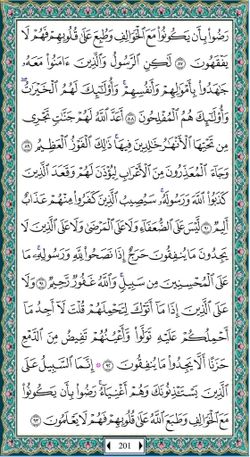 رَضُوا۟ بِأَن يَكُونُوا۟ مَعَ ٱلْخَوَالِفِ وَطُبِعَ عَلَىٰ قُلُوبِهِمْ فَهُمْ لَا
يَفْقَهُونَ ٨٧ لَٰكِنِ ٱلرَّسُولُ وَٱلَّذِينَ ءَامَنُوا۟ مَعَهُۥ
جَٰهَدُوا۟ بِأَمْوَٰلِهِمْ وَأَنفُسِهِمْ ۚ وَأُو۟لَٰٓئِكَ لَهُمُ ٱلْخَيْرَٰتُ ۖ
وَأُو۟لَٰٓئِكَ هُمُ ٱلْمُفْلِحُونَ ٨٨ أَعَدَّ ٱللَّهُ لَهُمْ جَنَّٰتٍ تَجْرِى
مِن تَحْتِهَا ٱلْأَنْهَٰرُ خَٰلِدِينَ فِيهَا ۚ ذَٰلِكَ ٱلْفَوْزُ ٱلْعَظِيمُ ٨٩
وَجَآءَ ٱلْمُعَذِّرُونَ مِنَ ٱلْأَعْرَابِ لِيُؤْذَنَ لَهُمْ وَقَعَدَ ٱلَّذِينَ
كَذَبُوا۟ ٱللَّهَ وَرَسُولَهُۥ ۚ سَيُصِيبُ ٱلَّذِينَ كَفَرُوا۟ مِنْهُمْ عَذَابٌ
أَلِيمٌ ٩٠ لَّيْسَ عَلَى ٱلضُّعَفَآءِ وَلَا عَلَى ٱلْمَرْضَىٰ وَلَا عَلَى ٱلَّذِينَ لَا
يَجِدُونَ مَا يُنفِقُونَ حَرَجٌ إِذَا نَصَحُوا۟ لِلَّهِ وَرَسُولِهِۦ ۚ مَا
عَلَى ٱلْمُحْسِنِينَ مِن سَبِيلٍ ۚ وَٱللَّهُ غَفُورٌ رَّحِيمٌ ٩١ وَلَا
عَلَى ٱلَّذِينَ إِذَا مَآ أَتَوْكَ لِتَحْمِلَهُمْ قُلْتَ لَآ أَجِدُ مَآ
أَحْمِلُكُمْ عَلَيْهِ تَوَلَّوا۟ وَّأَعْيُنُهُمْ تَفِيضُ مِنَ ٱلدَّمْعِ
حَزَنًا أَلَّا يَجِدُوا۟ مَا يُنفِقُونَ ٩٢ إِنَّمَا ٱلسَّبِيلُ عَلَى
ٱلَّذِينَ يَسْتَـْٔذِنُونَكَ وَهُمْ أَغْنِيَآءُ ۚ رَضُوا۟ بِأَن يَكُونُوا۟
مَعَ ٱلْخَوَالِفِ وَطَبَعَ ٱللَّهُ عَلَىٰ قُلُوبِهِمْ فَهُمْ لَا يَعْلَمُونَ ٩٣
201